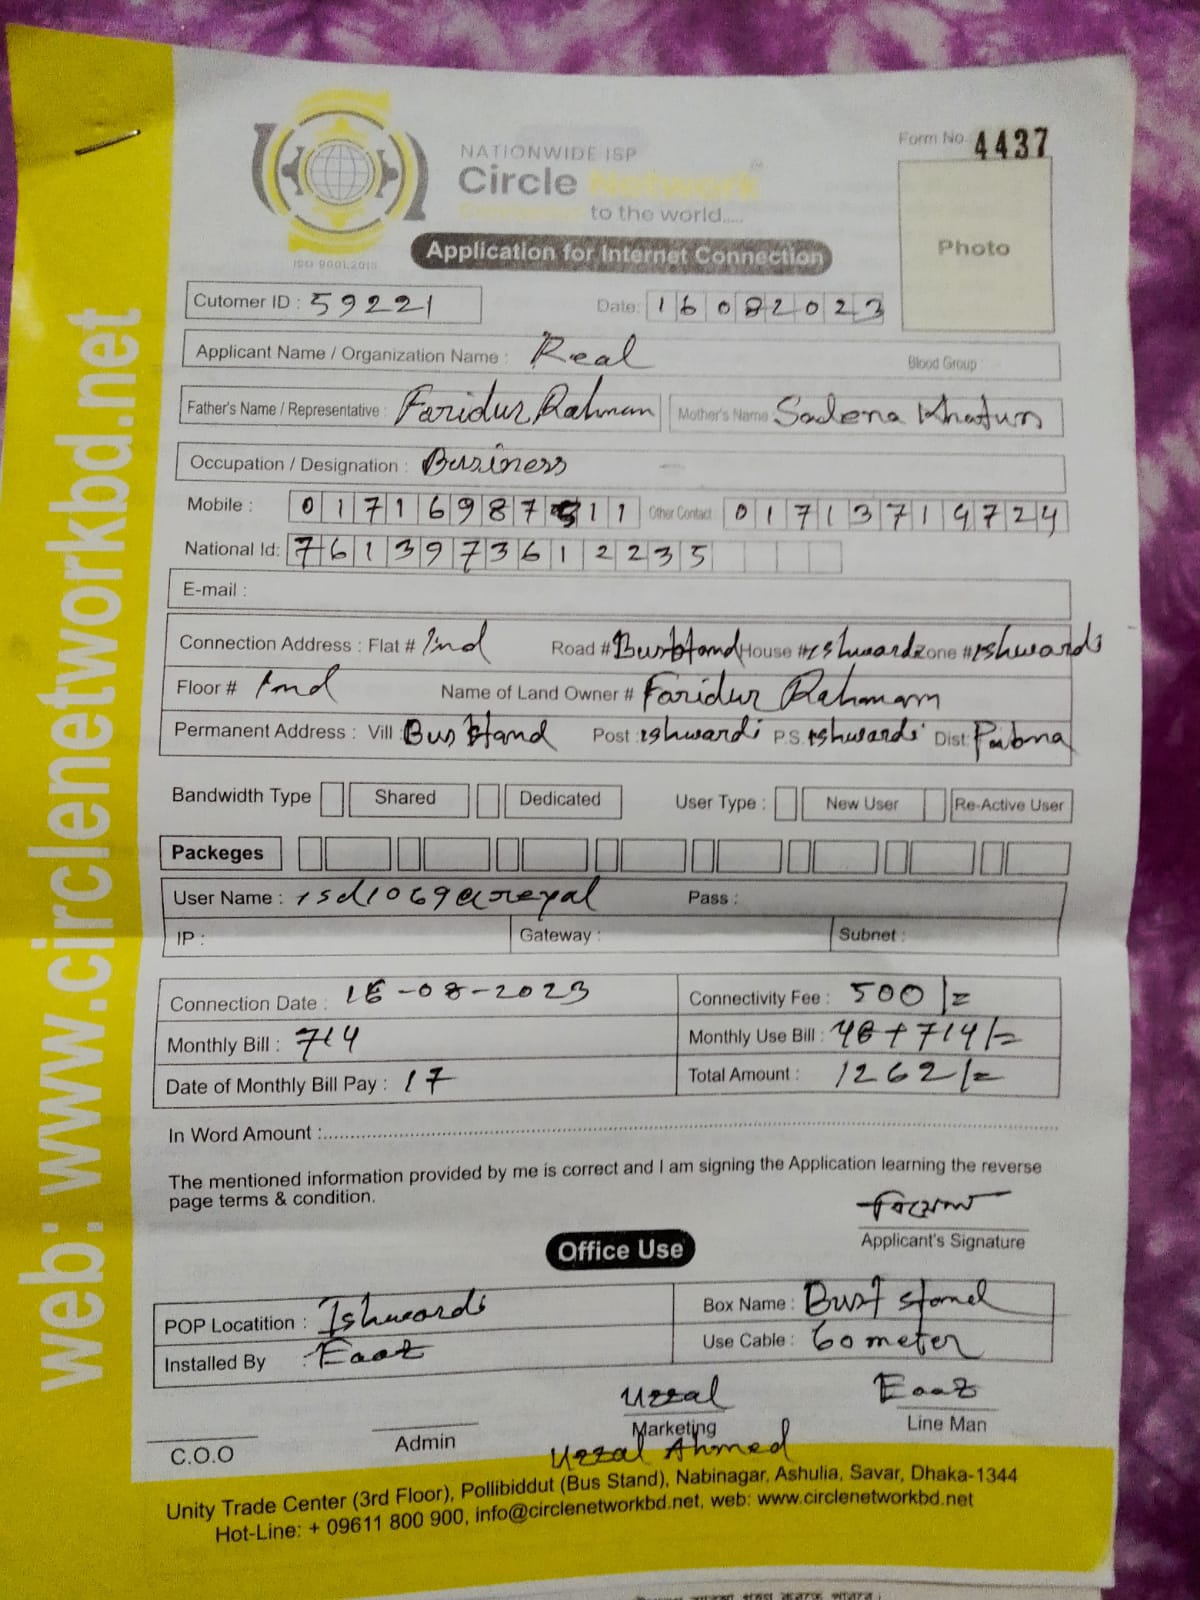 Form No. 4437
NATIONWIDE ISP
Circle Network
to the world.....
ISO 9001:2015
Photo
Application for Internet Connection
Cutomer ID : 59221 Date: 16082023
Applicant Name / Organization Name : Real Blood Group
Father's Name / Representative : Faridur Rahman Mother's Name Salena Khatun
Occupation / Designation : Business
Mobile : 01716987511 Other Contact 01713719724
National Id: 7613973612235
E-mail :
Connection Address : Flat # 2nd Road # Busstand House # Ishwardi Zone # Ishwardi
Floor # 2nd Name of Land Owner # Faridur Rahman
Permanent Address : Vill : Bus stand Post : Ishwardi P.S. Ishwardi Dist: Pabna
Bandwidth Type Shared Dedicated User Type : New User Re-Active User
Packeges
User Name : isd1069@reyal Pass :
IP : Gateway : Subnet :
Connection Date : 16-08-2023 Connectivity Fee : 500/=
Monthly Bill : 714 Monthly Use Bill : 48+714/=
Date of Monthly Bill Pay : 17 Total Amount : 1262/=
In Word Amount :
The mentioned information provided by me is correct and I am signing the Application learning the reverse
page terms & condition.
Applicant's Signature
Office Use
POP Locatition : Ishwardi Box Name : Bust stand
Installed By : Eaaz Use Cable : 60 meter
Uzzal Eaaz
C.O.O Admin Marketing Line Man
Uzzal Ahmed
Unity Trade Center (3rd Floor), Pollibiddut (Bus Stand), Nabinagar, Ashulia, Savar, Dhaka-1344
Hot-Line: + 09611 800 900, info@circlenetworkbd.net, web: www.circlenetworkbd.net
web: www.circlenetworkbd.net